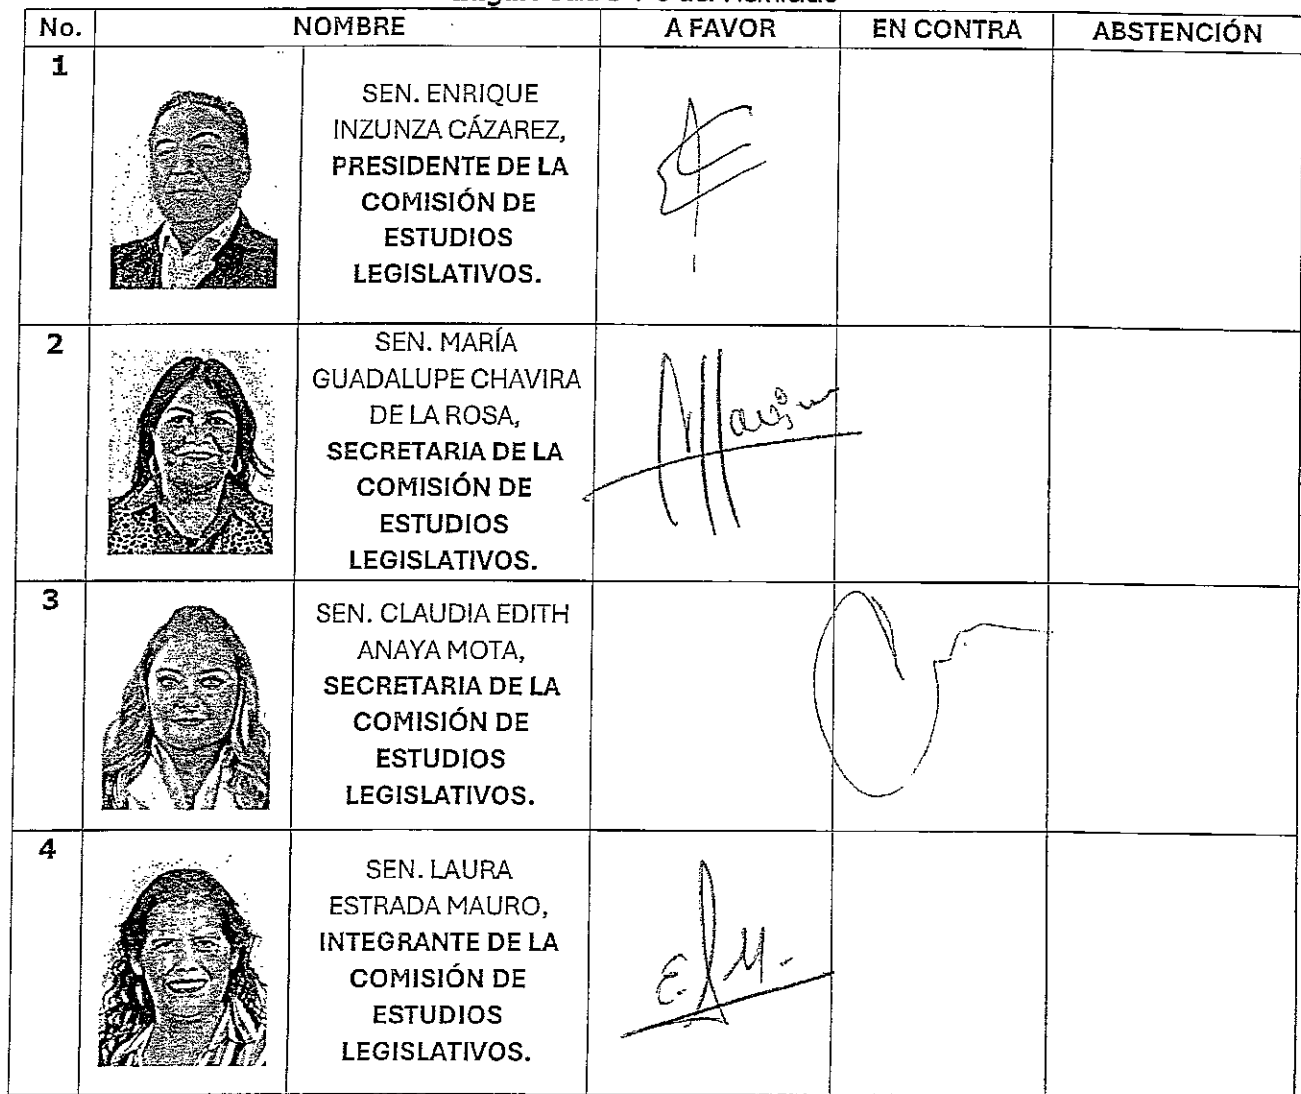 No. NOMBRE A FAVOR EN CONTRA ABSTENCIÓN
1
SEN. ENRIQUE
INZUNZA CÁZAREZ,
PRESIDENTE DE LA
COMISIÓN DE
ESTUDIOS
LEGISLATIVOS.
2
SEN. MARÍA
GUADALUPE CHAVIRA
DE LA ROSA,
SECRETARIA DE LA
COMISIÓN DE
ESTUDIOS
LEGISLATIVOS.
3
SEN. CLAUDIA EDITH
ANAYA MOTA,
SECRETARIA DE LA
COMISIÓN DE
ESTUDIOS
LEGISLATIVOS.
4
SEN. LAURA
ESTRADA MAURO,
INTEGRANTE DE LA
COMISIÓN DE
ESTUDIOS
LEGISLATIVOS.
E. M.